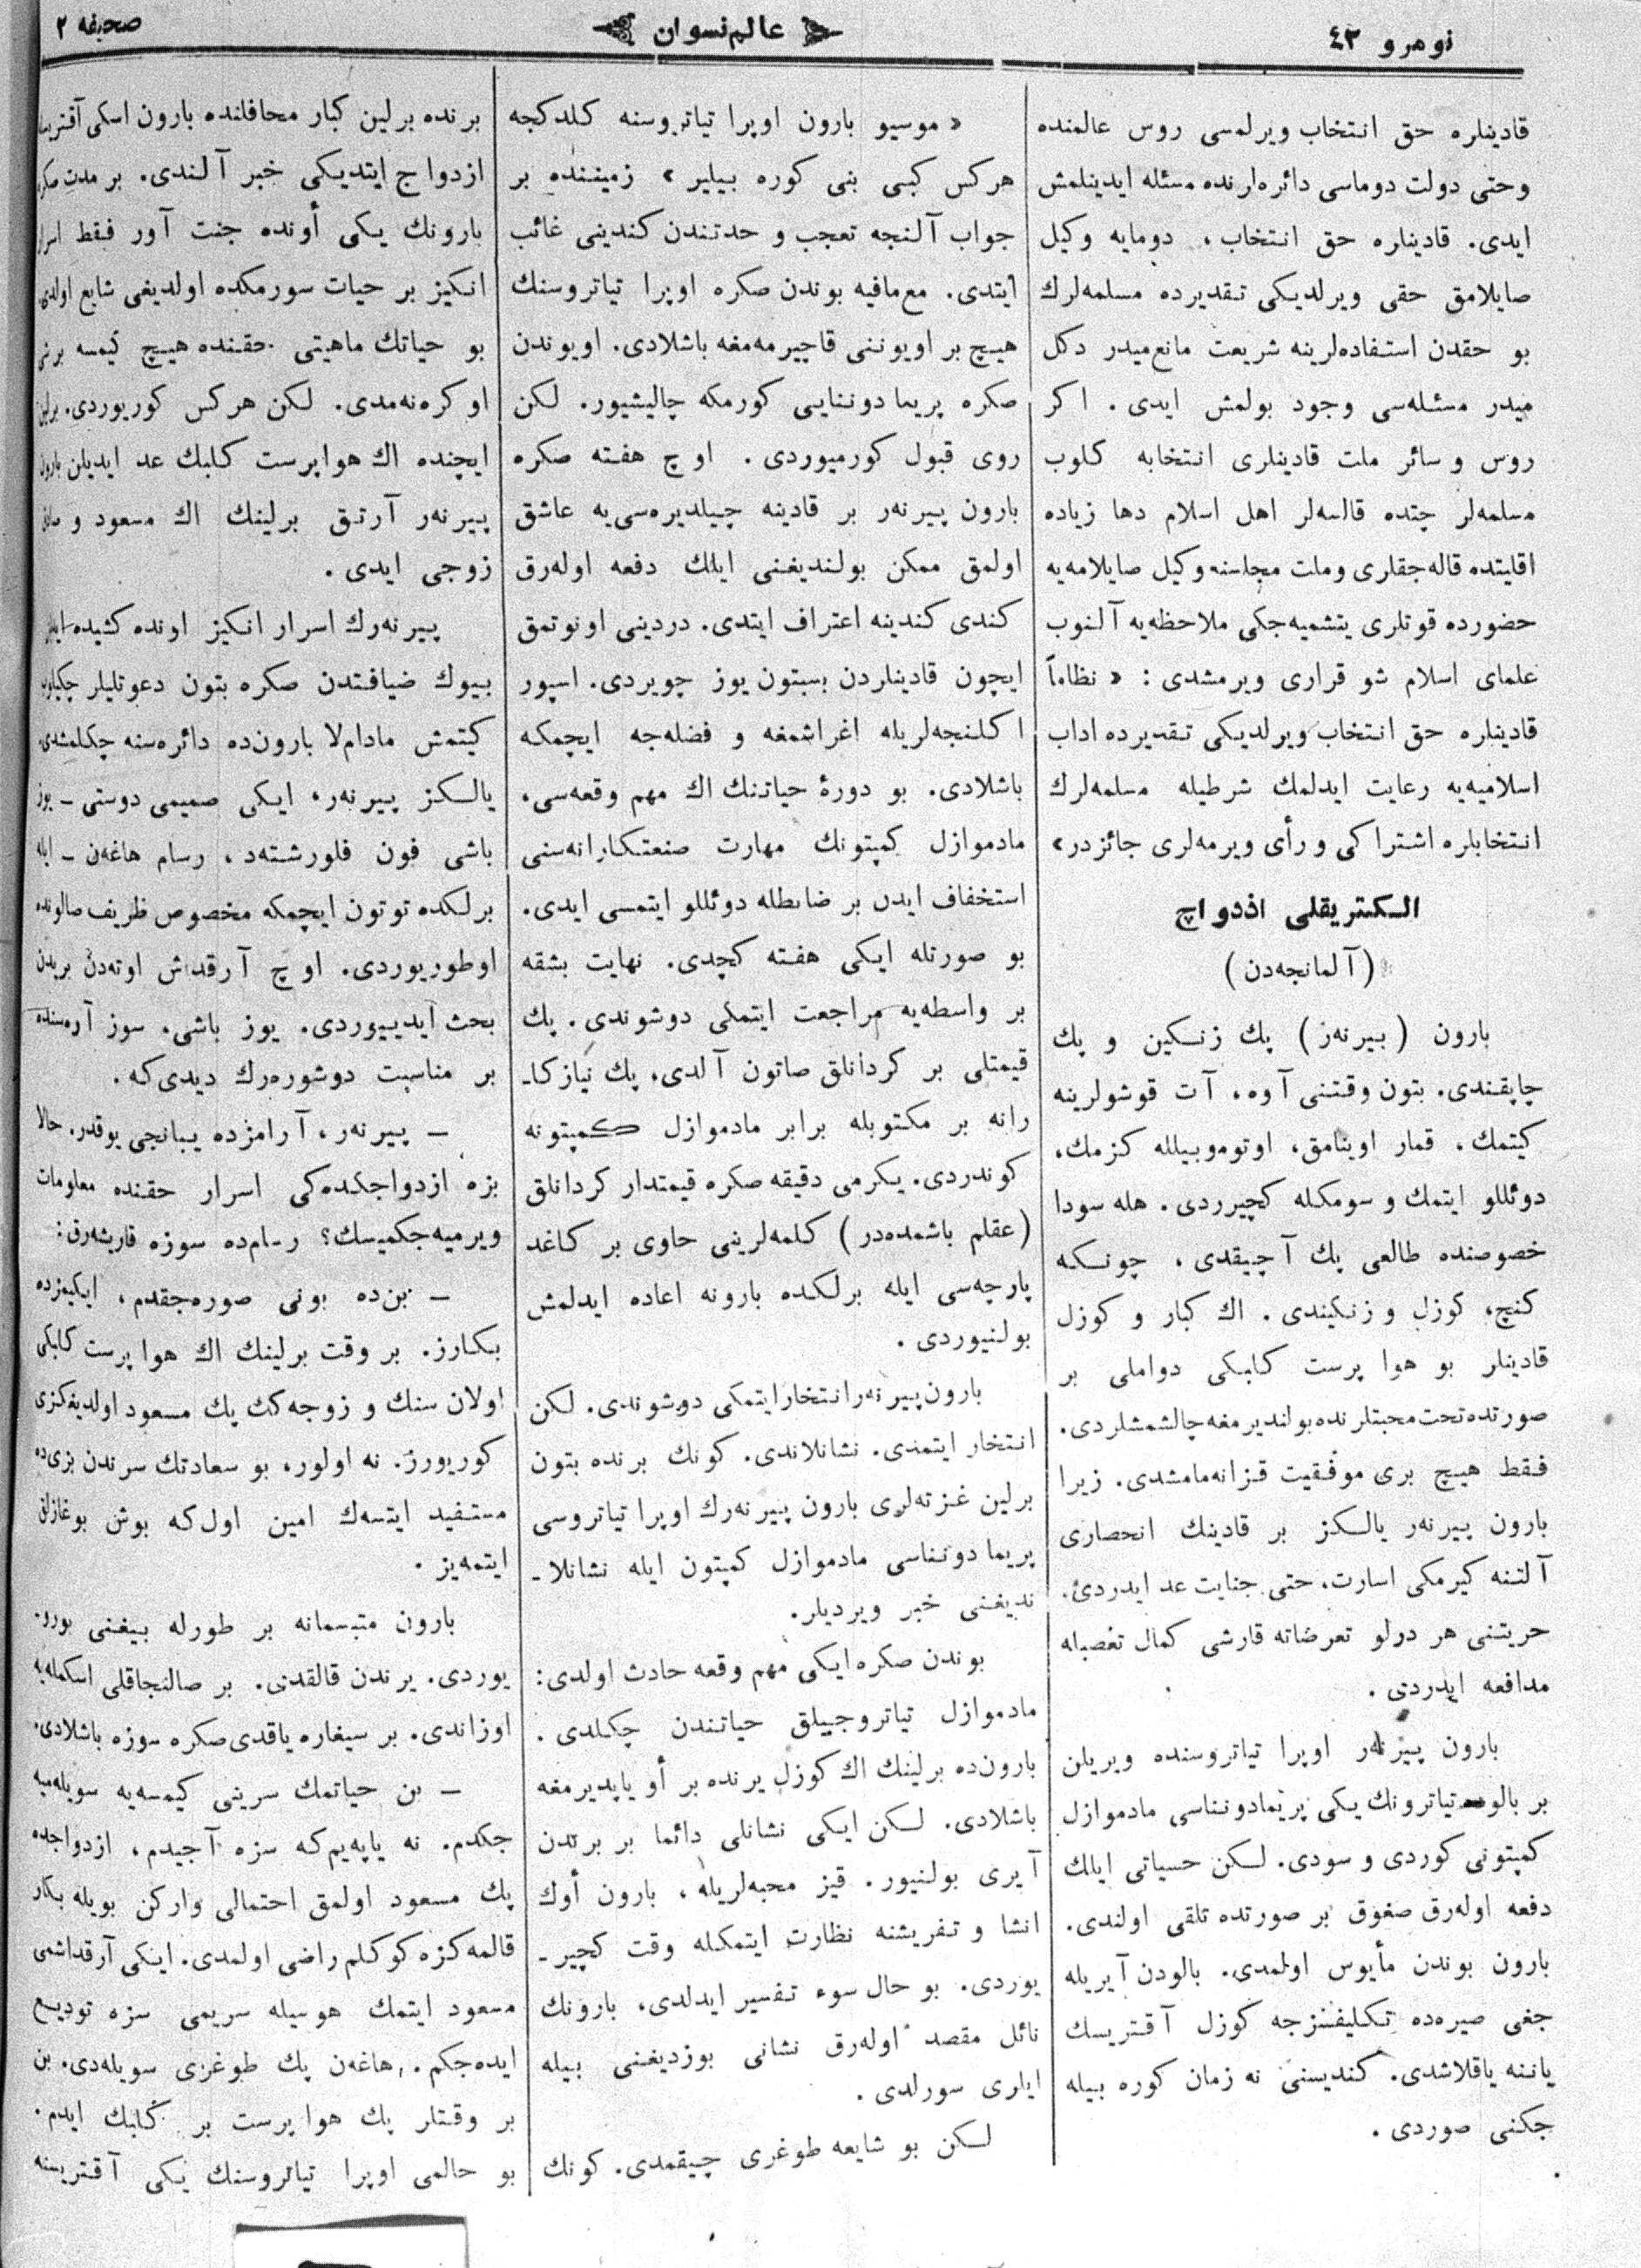 نومرو ٤٣
عالم نسوان
صحیفه ٢
قادینلره حق انتخاب ویرلمسی روس عالمنده
وحتی دولت دوماسی دائره‌لرنده مسئله ایدینلمش
ایدی. قادینلره حق انتخاب، دومایه وکیل
صایلامق حقی ویرلدیکی تقدیرده مسلمه‌لرك
بو حقدن استفاده‌لرینه شریعت مانع‌میدر دکل
میدر مسئله‌سی وجود بولمش ایدی. اکر
روس و سائر ملت قادینلری انتخابه کلوب
مسلمه‌لر چتده قالسه‌لر اهل اسلام دها زیاده
اقلیتده قاله‌جقلری وملت مجلسنه وکیل صایلامه‌یه
حضورده قوتلری یتشمیه‌جکی ملاحظه‌یه آلنوب
علمای اسلام شو قراری ویرمشدی: « نظاماً
قادینلره حق انتخاب ویرلدیکی تقدیرده اداب
اسلامیه‌یه رعایت ایدلمك شرطیله مسلمه‌لرك
انتخابلره اشتراکی و رأی ویرمه‌لری جائزدر»
السکتریقلی اذدواچ
(آلمانجه‌دن)
بارون (بیرنه‌ر) پك زنکین و پك
چاپقندی. بتون وقتنی آوه، آت قوشولرینه
کیتمك، قمار اوینامق، اوتوموبیلله کزمك،
دوئللو ایتمك و سومکله کچیرردی. هله سودا
خصوصنده طالعی پك آچیقدی، چونکه
کنچ، کوزل و زنکیندی. اك کبار و کوزل
قادینلر بو هوا پرست کلبکی دواملی بر
صورتده تحت محبتلرنده بولندیرمغه چالشمشلردی.
فقط هیچ بری موفقیت قزانه‌مامشدی. زیرا
بارون پیرنه‌ر یالکز بر قادینك انحصاری
آلتنه کیرمکی اسارت، حتی جنایت عد ایدردی.
حریتنی هر درلو تعرضاته قارشی کمال تعصبله
مدافعه ایدردی.
بارون پیرنه‌ر اوپرا تیاتروسنده ویریلن
بر بالوده تیاترونك یکی پریمادونناسی مادموازل
کمپتونی کوردی و سودی. لکن حسیاتی ایلك
دفعه اوله‌رق صغوق بر صورتده تلقی اولندی.
بارون بوندن مأیوس اولمدی. بالودن آیریله
جغی صیره‌ده تکلیفسزجه کوزل آقتریسك
یاننه یاقلاشدی. کندیسنی نه زمان کوره بیله
جکنی صوردی.
« موسیو بارون اوپرا تیاتروسنه کلدکجه
هرکس کبی بنی کوره بیلیر» زمیننده بر
جواب آلنجه تعجب و حدتندن کندینی غائب
ایتدی. مع‌مافیه بوندن صکره اوپرا تیاتروسنك
هیچ بر اویوننی قاچیرمه‌مغه باشلادی. اویوندن
صکره پریما دوننایی کورمکه چالیشیور. لکن
روی قبول کورمیوردی. اوچ هفته صکره
بارون پیرنه‌ر بر قادینه چیلدیره‌سی‌یه عاشق
اولمق ممکن بولندیغنی ایلك دفعه اوله‌رق
کندی کندینه اعتراف ایتدی. دردینی اونوتمق
ایچون قادینلردن بسبتون یوز چویردی. اسپور
اکلنجه‌لریله اغراشمغه و فضله‌جه ایچمکه
باشلادی. بو دورۀ حیاتنك اك مهم وقعه‌سی،
مادموازل کمپتونك مهارت صنعتکارانه‌سنی
استخفاف ایدن بر ضابطله دوئللو ایتمسی ایدی.
بو صورتله ایکی هفته کچدی. نهایت بشقه
بر واسطه‌یه مراجعت ایتمکی دوشوندی. پك
قیمتلی بر کردانلق صاتون آلدی، پك نیازکا-
رانه بر مکتوبله برابر مادموازل کمپتونه
کوندردی. یکرمی دقیقه صکره قیمتدار کردانلق
(عقلم باشمده‌در) کلمه‌لرینی حاوی بر کاغد
پارچه‌سی ایله برلکده بارونه اعاده ایدلمش
بولنیوردی.
بارون پیرنه‌ر انتخار ایتمکی دوشوندی. لکن
انتخار ایتمدی. نشانلاندی. کونك برنده بتون
برلین غزته‌لری بارون پیرنه‌رك اوپرا تیاتروسی
پریما دونناسی مادموازل کمپتون ایله نشانلا-
ندیغنی خبر ویردیلر.
بوندن صکره ایکی مهم وقعه حادث اولدی:
مادموازل تیاتروجیلق حیاتندن چکلدی.
بارون‌ده برلینك اك کوزل یرنده بر أو یاپدیرمغه
باشلادی. لکن ایکی نشانلی دائما بر برندن
آیری بولنیور. قیز محبه‌لریله، بارون أوك
انشا و تفریشنه نظارت ایتمکله وقت کچیر-
یوردی. بو حال سوء تفسیر ایدلدی، بارونك
نائل مقصد اوله‌رق نشانی بوزدیغنی بیله
ایلری سورلدی.
لکن بو شایعه طوغری چیقمدی. کونك
برنده برلین کبار محافلنده بارون اسکی
ازدواج ایتدیکی خبر آلندی. بر مدت صکره
بارونك یکی أونده جنت آور فقط اسرار
انکیز بر حیات سورمکده اولدیغی شایع اولدی.
بو حیاتك ماهیتی حقنده هیچ کیمسه برشی
اوکره‌نه‌مدی. لکن هرکس کوریوردی. برلین
ایچنده اك هواپرست کلبك عد ایدیلن بارون
پیرنه‌ر آرتق برلینك اك مسعود و
زوجی ایدی.
پیرنه‌رك اسرار انکیز اونده کشیده
بیوك ضیافتدن صکره بتون دعوتلیلر چکیلوب
کیتمش مادام‌لا بارون‌ده دائره‌سنه چکلمشدی.
یالکز پیرنه‌ر، ایکی صمیمی دوستی ـ یوز
باشی فون فلورشته‌د، رسام هاغه‌ن ـ ایله
برلکده توتون ایچمکه مخصوص ظریف صالونده
اوطوریوردی. اوچ آرقداش اوته‌دن بریدن
بحث ایدییوردی. یوز باشی، سوز آره‌سنده
بر مناسبت دوشوره‌رك دیدی‌که.
ـ پیرنه‌ر، آرامزده یبانجی یوقدر. حالا
بزه ازدواجکده‌کی اسرار حقنده معلومات
ویرمیه‌جکمیسك؟ رسام‌ده سوزه قاریشه‌رق:
ـ بن‌ده بونی صوره‌جقدم، ایکیمزده
بکارز. بر وقت برلینك اك هوا پرست کلبکی
اولان سنك و زوجه‌کك پك مسعود اولدیغکزی
کوریورز. نه اولور، بو سعادتك سرندن بزی‌ده
مستفید ایتسه‌ك امین اول‌که بوش بوغازلق
ایتمه‌یز.
بارون متبسمانه بر طورله بیغنی بورو-
یوردی. یرندن قالقدی. بر صالنجاقلی اسکمله‌یه
اوزاندی. بر سیغاره یاقدی صکره سوزه باشلادی.
ـ بن حیاتمك سرینی کیمسه‌یه سویله‌میه
جکدم. نه یاپه‌یم‌که سزه آجیدم، ازدواجده
پك مسعود اولمق احتمالی وارکن بویله بکار
قالمه‌کزه کوکلم راضی اولمدی. ایکی آرقداشمی
مسعود ایتمك هوسیله سریمی سزه تودیع
ایده‌جکم. هاغه‌ن پك طوغری سویله‌دی. بن
بر وقتلر پك هوا پرست بر کلبك ایدم.
بو حالمی اوپرا تیاتروسنك یکی آقتریسنه